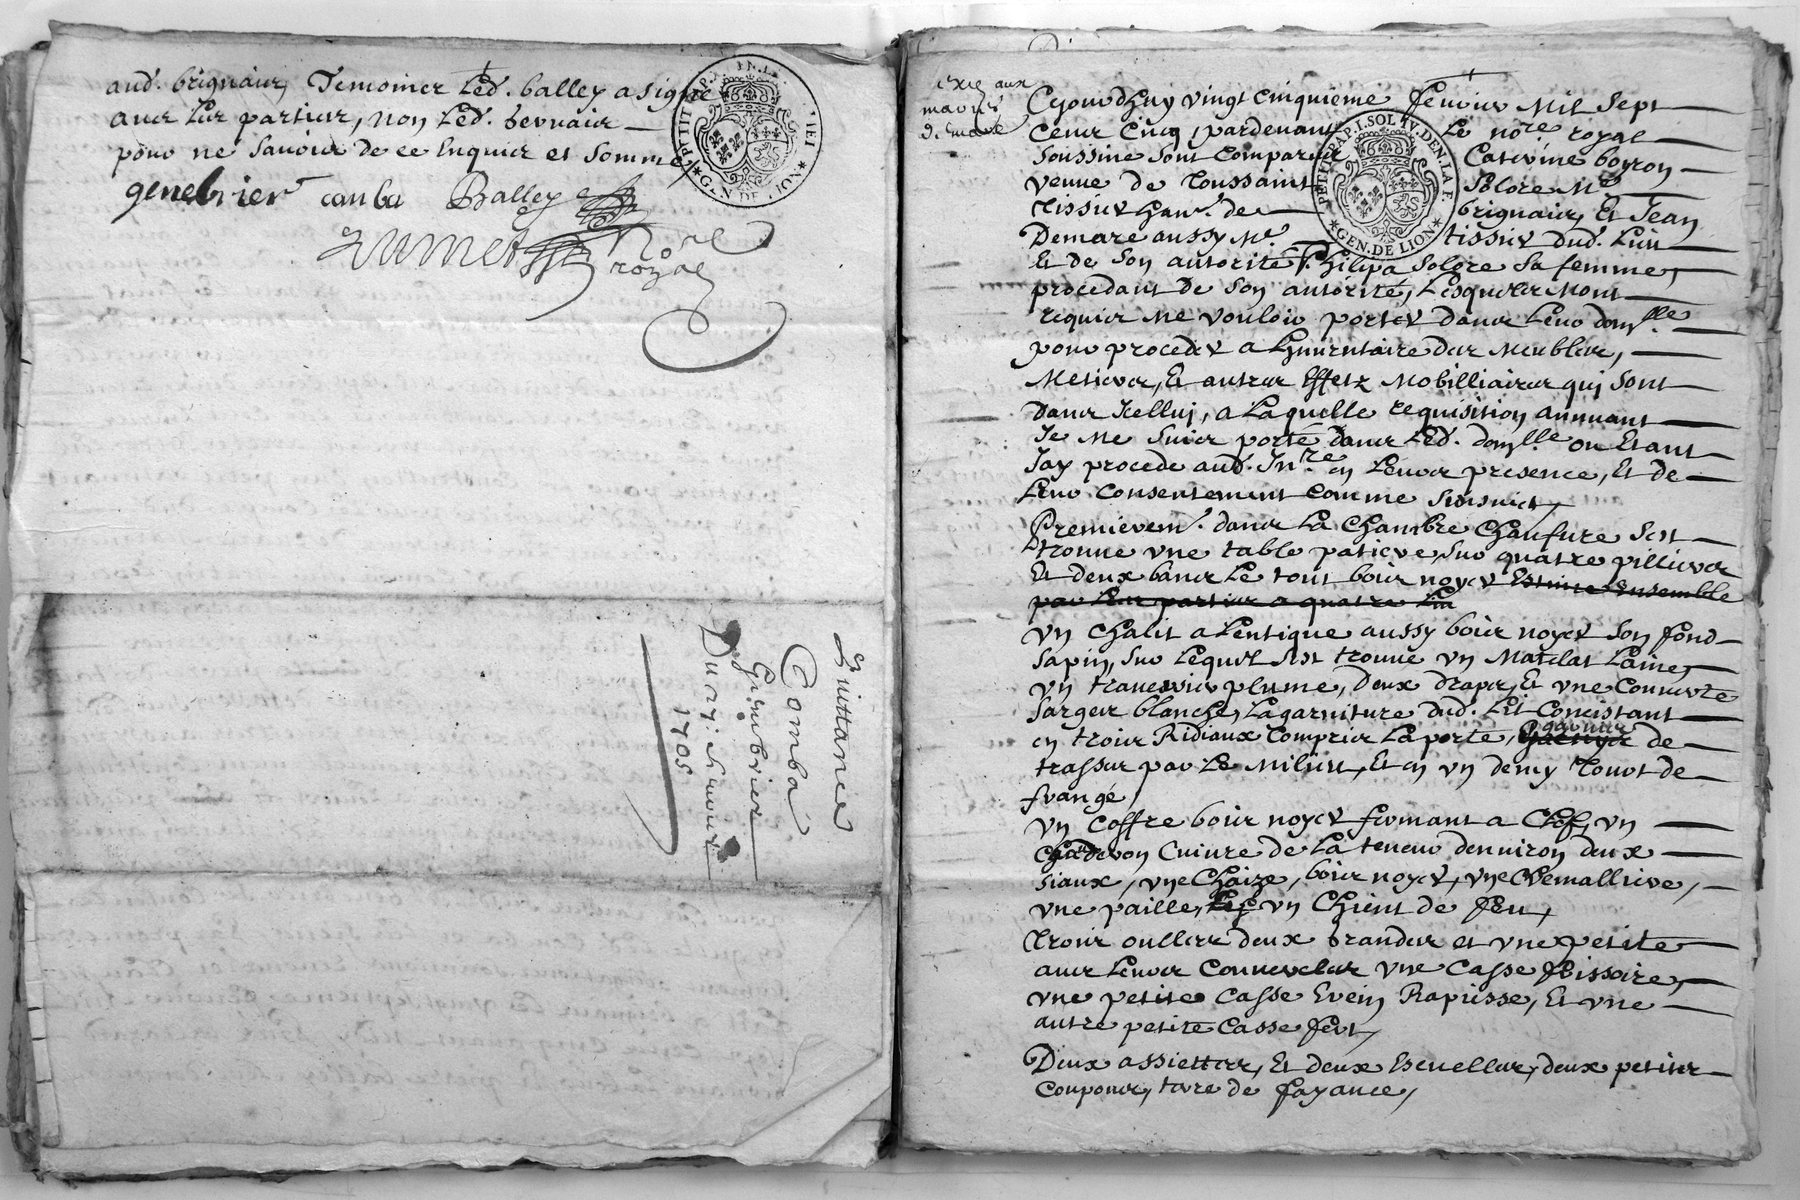 aud. brignais, Temoines Led. balley a signé
avec Les parties, non Led. bernair
pour ne savoir de ce Enquis et sommé,
genebrier canba Balley
no.re royal
PETIT PAP. GEN. DE LION
Quittance
Comba
Genebrier
Du 27: Janvier
1705
exp.ée aux
mariés
d. mare
Cejourdhuy vingt cinquieme Janvier Mil Sept
Cens Cinq, pardevant Le no.re royal
Soussine Sont Comparus Caterine boyron
veuve de Toussaint Solore M.e
Tissier han.t de brignais, Et Jean
Demare aussy M.e tissier dud. Lieu
Et de Son autorité Philipa Solore Sa femme
procedant de Son autorité, Lesquels Mont
requis Me vouloir porter dans Leur dom.lle
pour procedez a Linventaire des Meubles,
Metiers, Et autres Effetz Mobilliaires qui Sont
dans Icelluj, a Laquelle requisition annuant
Je Me Suis porté dans Led. dom.lle ou Etant
Jay procede aud. In.re en Leurs presence, Et de
Leur Consentement Comme Sensuict,
Premierem.t dans La Chambre Chaufure Sest
trouve vne table patiere, Sur quatre pilliers
Et deux bancs Le tout bois noyer Estimé Ensemble
par Les parties a quatre Liv
vn Chalit a Lentique aussy bois noyer Son fond
Sapin, Sur Lequel Sest trouve vn Matelas Laine,
vn traversier plume, deux draps, Et vne Couverte
Sarges blanche, La garniture dud. Lit Concistant
en trois Ridiaux Compris La porte, garnies de
trasses par Le Milieu, Et en vn demy Tour de
frange,
vn Coffre bois noyer fermant a Clef, vn
Chaderon Cuivre de La teneur denviron deux
siaux, vne Chaize, bois noyer, vne Cremalliere,
vne paille, vn Chient de feu,
Trois oulles deux Grandes et vne petite
avec Leurs Couvercles vne Casse frissoire,
vne petite Casse Evein Rapiesse, Et vne
autre petite Casse fert,
Deux assiettes, Et deux Escuelles, deux petites
Coupones, terre de fayance,
PETIT PAP. I. SOL IV. DEN. LA F. GEN. DE LION